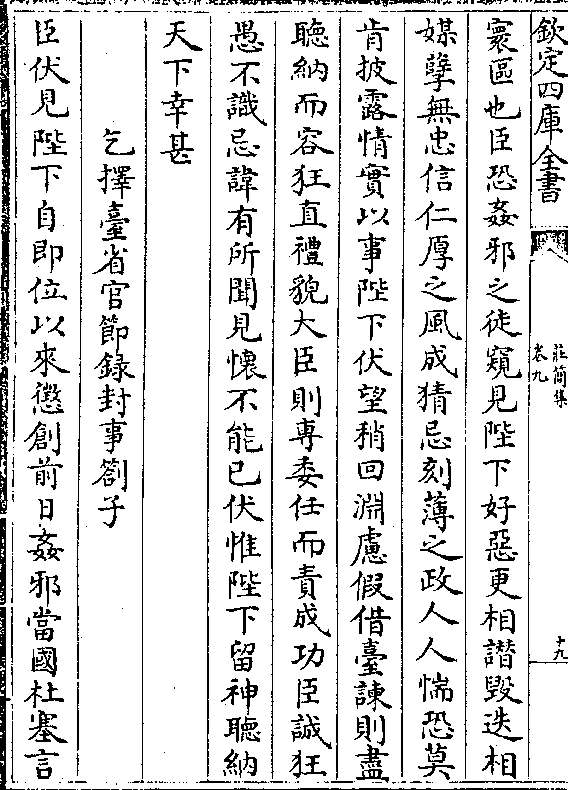 欽定四庫全書
莊簡集
卷九
十九
寰區也臣恐姦邪之徒窺見陛下好惡更相譖毀迭相
媒孽無忠信仁厚之風成猜忌刻薄之政人人惴恐莫
肯披露情實以事陛下伏望稍回淵慮假借臺諫則盡
聽納而容狂直禮貌大臣則專委任而責成功臣誠狂
愚不識忌諱有所聞見懷不能已伏惟陛下留神聽納
天下幸甚
乞擇臺省官節錄封事劄子
臣伏見陛下自即位以來懲創前日姦邪當國杜塞言